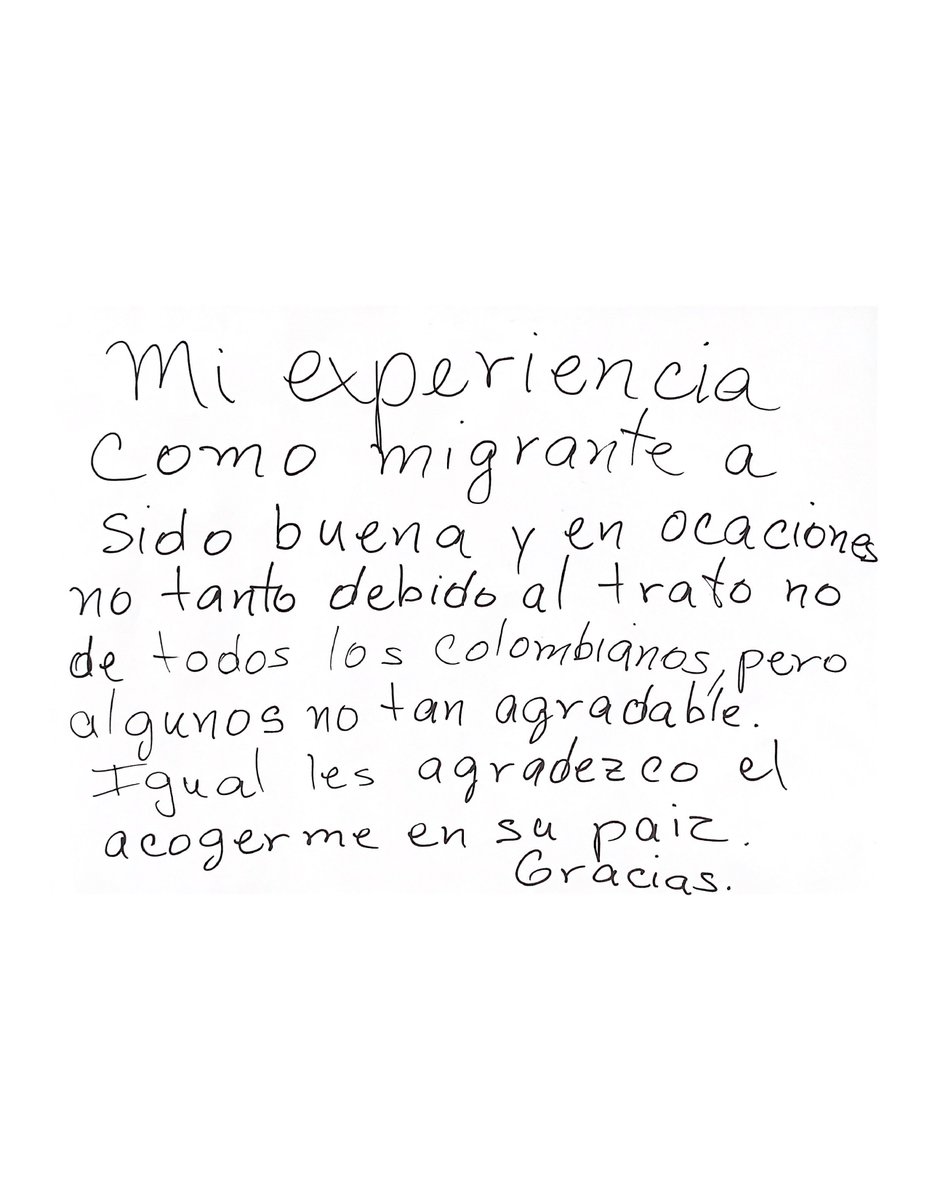 Mi experiencia
como migrante a
sido buena y en ocaciones
no tanto debido al trato no
de todos los colombianos, pero
algunos no tan agradable.
Igual les agradezco el
acogerme en su paiz.
Gracias.